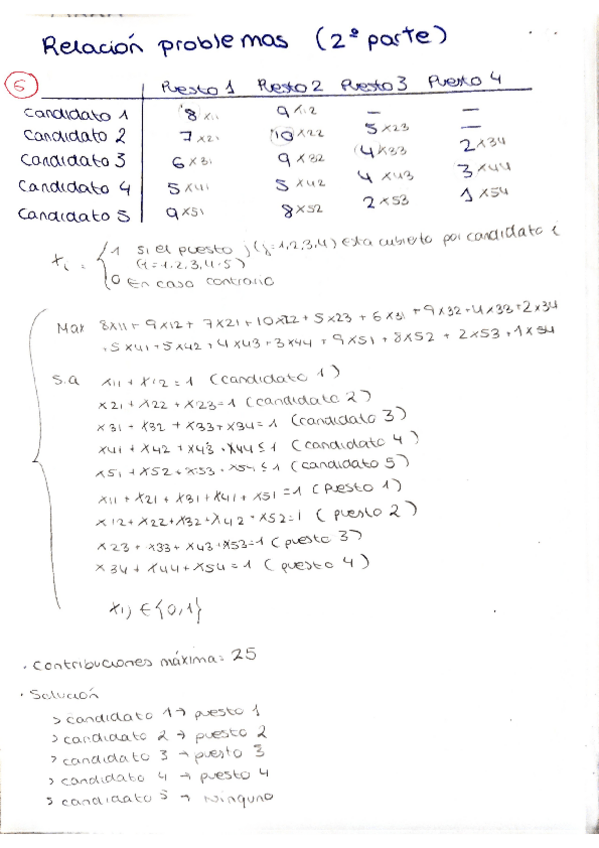 Relación problemas (2ª parte)
5
Puesto 1 Puesto 2 Puesto 3 Puesto 4
candidato 1 8 x11 9 x12 — —
candidato 2 7 x21 10 x22 5 x23 —
candidato 3 6 x31 9 x32 4 x33 2 x34
candidato 4 5 x41 5 x42 4 x43 3 x44
candidato 5 9 x51 8 x52 2 x53 1 x54
xi = { 1 si el puesto j (j=1,2,3,4) esta cubierto por candidato i
(i=1,2,3,4,5)
0 En caso contrario
Max 8x11 + 9x12 + 7x21 + 10x22 + 5x23 + 6x31 + 9x32 + 4x33 + 2x34
+ 5x41 + 5x42 + 4x43 + 3x44 + 9x51 + 8x52 + 2x53 + 1x54
s.a x11 + x12 = 1 (candidato 1)
x21 + x22 + x23 = 1 (candidato 2)
x31 + x32 + x33 + x34 = 1 (candidato 3)
x41 + x42 + x43 + x44 ≤ 1 (candidato 4)
x51 + x52 + x53 + x54 ≤ 1 (candidato 5)
x11 + x21 + x31 + x41 + x51 = 1 (Puesto 1)
x12 + x22 + x32 + x42 + x52 = 1 (puesto 2)
x23 + x33 + x43 + x53 = 1 (puesto 3)
x34 + x44 + x54 = 1 (puesto 4)
xij ∈ {0,1}
· contribuciones máxima: 25
· Solución
> candidato 1 → puesto 1
> candidato 2 → puesto 2
> candidato 3 → puesto 3
> candidato 4 → puesto 4
> candidato 5 → ninguno